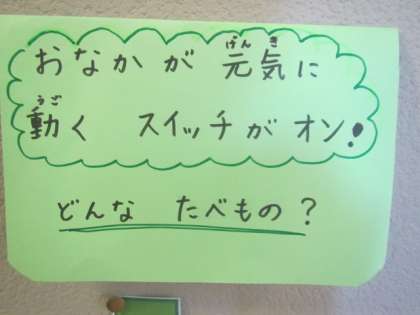 おなかが 元気に
動く スイッチが オン!
どんな たべもの?